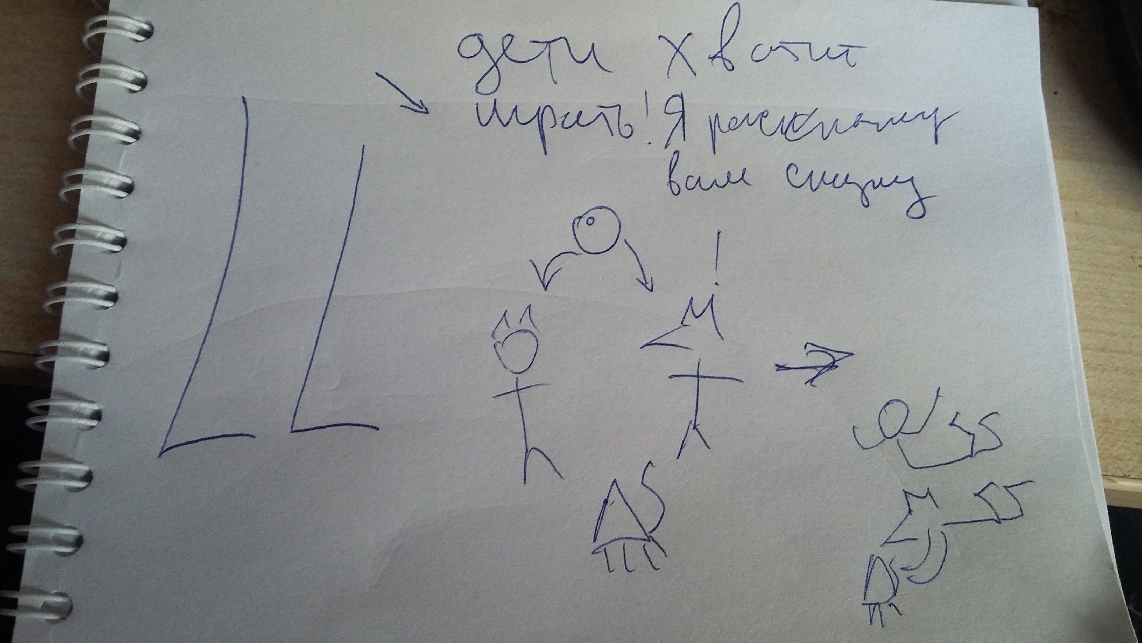 дети хватит
играть! Я расскажу
вам сказку